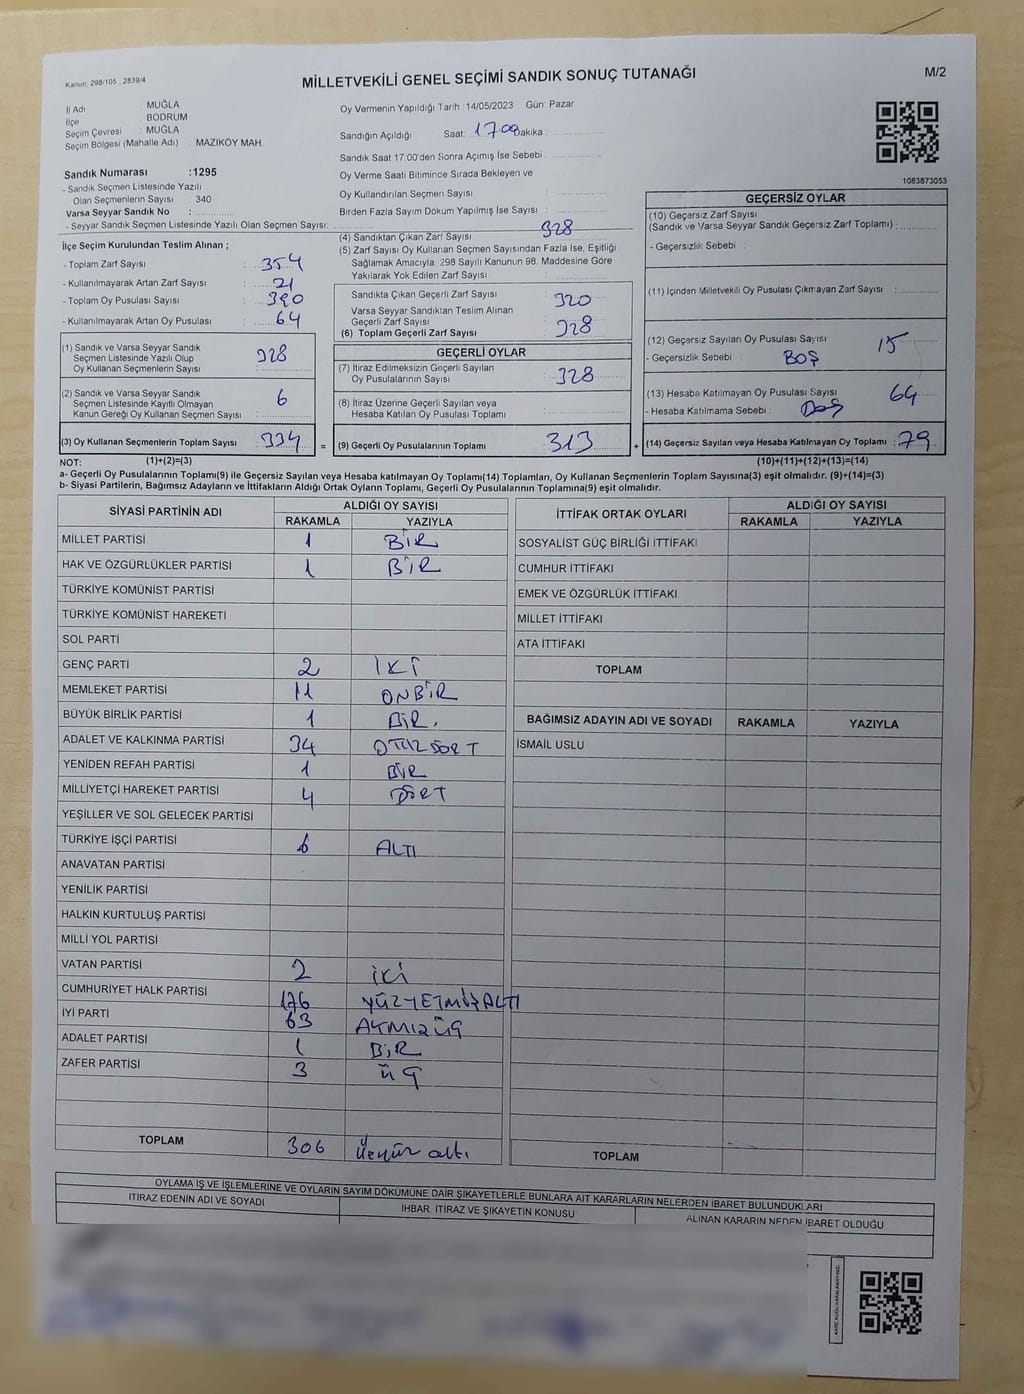 Kanun: 298/105 , 2839/4
MİLLETVEKİLİ GENEL SEÇİMİ SANDIK SONUÇ TUTANAĞI
M/2
İl Adı : MUĞLA
İlçe : BODRUM
Seçim Çevresi : MUĞLA
Seçim Bölgesi (Mahalle Adı) : MAZIKÖY MAH.
Sandık Numarası :1295
- Sandık Seçmen Listesinde Yazılı
Olan Seçmenlerin Sayısı : 340
Varsa Seyyar Sandık No :
- Seyyar Sandık Seçmen Listesinde Yazılı Olan Seçmen Sayısı:
İlçe Seçim Kurulundan Teslim Alınan ;
- Toplam Zarf Sayısı : 354
- Kullanılmayarak Artan Zarf Sayısı : 21
- Toplam Oy Pusulası Sayısı : 390
- Kullanılmayarak Artan Oy Pusulası : 64
(1) Sandık ve Varsa Seyyar Sandık
Seçmen Listesinde Yazılı Olup
Oy Kullanan Seçmenlerin Sayısı : 328
(2) Sandık ve Varsa Seyyar Sandık
Seçmen Listesinde Kayıtlı Olmayan
Kanun Gereği Oy Kullanan Seçmen Sayısı : 6
(3) Oy Kullanan Seçmenlerin Toplam Sayısı : 334 =
Oy Vermenin Yapıldığı Tarih :14/05/2023 Gün: Pazar
Sandığın Açıldığı Saat: 17 00 Dakika :
Sandık Saat 17.00'den Sonra Açımış İse Sebebi :
Oy Verme Saati Bitiminde Sırada Bekleyen ve
Oy Kullandırılan Seçmen Sayısı :
Birden Fazla Sayım Döküm Yapılmış İse Sayısı :
(4) Sandıktan Çıkan Zarf Sayısı : 328
(5) Zarf Sayısı Oy Kullanan Seçmen Sayısından Fazla İse, Eşitliği
Sağlamak Amacıyla, 298 Sayılı Kanunun 98. Maddesine Göre
Yakılarak Yok Edilen Zarf Sayısı :
Sandıkta Çıkan Geçerli Zarf Sayısı : 320
Varsa Seyyar Sandıktan Teslim Alınan
Geçerli Zarf Sayısı :
(6) Toplam Geçerli Zarf Sayısı : 328
GEÇERLİ OYLAR
(7) İtiraz Edilmeksizin Geçerli Sayılan
Oy Pusulalarının Sayısı : 328
(8) İtiraz Üzerine Geçerli Sayılan veya
Hesaba Katılan Oy Pusulası Toplamı :
(9) Geçerli Oy Pusulalarının Toplamı : 313 +
1083873053
GEÇERSİZ OYLAR
(10) Geçersiz Zarf Sayısı
(Sandık ve Varsa Seyyar Sandık Geçersiz Zarf Toplamı) :
- Geçersizlik Sebebi :
(11) İçinden Milletvekili Oy Pusulası Çıkmayan Zarf Sayısı :
(12) Geçersiz Sayılan Oy Pusulası Sayısı : 15
- Geçersizlik Sebebi : BOŞ
(13) Hesaba Katılmayan Oy Pusulası Sayısı : 64
- Hesaba Katılmama Sebebi :
(14) Geçersiz Sayılan veya Hesaba Katılmayan Oy Toplamı : 79
NOT: (1)+(2)=(3) (10)+(11)+(12)+(13)=(14)
a- Geçerli Oy Pusulalarının Toplamı(9) ile Geçersiz Sayılan veya Hesaba katılmayan Oy Toplamı(14) Toplamları, Oy Kullanan Seçmenlerin Toplam Sayısına(3) eşit olmalıdır. (9)+(14)=(3)
b- Siyasi Partilerin, Bağımsız Adayların ve İttifakların Aldığı Ortak Oyların Toplamı, Geçerli Oy Pusulalarının Toplamına(9) eşit olmalıdır.
SİYASİ PARTİNİN ADI ALDIĞI OY SAYISI
RAKAMLA YAZIYLA
MİLLET PARTİSİ 1 BİR
HAK VE ÖZGÜRLÜKLER PARTİSİ 1 BİR
TÜRKİYE KOMÜNİST PARTİSİ
TÜRKİYE KOMÜNİST HAREKETİ
SOL PARTİ
GENÇ PARTİ 2 İKİ
MEMLEKET PARTİSİ 11 ONBİR
BÜYÜK BİRLİK PARTİSİ 1 BİR.
ADALET VE KALKINMA PARTİSİ 34
YENİDEN REFAH PARTİSİ 1 BİR
MİLLİYETÇİ HAREKET PARTİSİ 4 DÖRT
YEŞİLLER VE SOL GELECEK PARTİSİ
TÜRKİYE İŞÇİ PARTİSİ 6 ALTI
ANAVATAN PARTİSİ
YENİLİK PARTİSİ
HALKIN KURTULUŞ PARTİSİ
MİLLİ YOL PARTİSİ
VATAN PARTİSİ 2 İKİ
CUMHURİYET HALK PARTİSİ 176 YÜZYETMİŞALTI
İYİ PARTİ 63
ADALET PARTİSİ 1 BİR
ZAFER PARTİSİ 3 ÜÇ
TOPLAM 306 Üçyüz altı
İTTİFAK ORTAK OYLARI ALDIĞI OY SAYISI
RAKAMLA YAZIYLA
SOSYALİST GÜÇ BİRLİĞİ İTTİFAKI
CUMHUR İTTİFAKI
EMEK VE ÖZGÜRLÜK İTTİFAKI
MİLLET İTTİFAKI
ATA İTTİFAKI
TOPLAM
BAĞIMSIZ ADAYIN ADI VE SOYADI RAKAMLA YAZIYLA
İSMAİL USLU
TOPLAM
OYLAMA İŞ VE İŞLEMLERİNE VE OYLARIN SAYIM DÖKÜMÜNE DAİR ŞİKAYETLERLE BUNLARA AİT KARARLARIN NELERDEN İBARET BULUNDUKLARI
İTİRAZ EDENİN ADI VE SOYADI İHBAR, İTİRAZ VE ŞİKAYETİN KONUSU ALINAN KARARIN NEDEN İBARET OLDUĞU